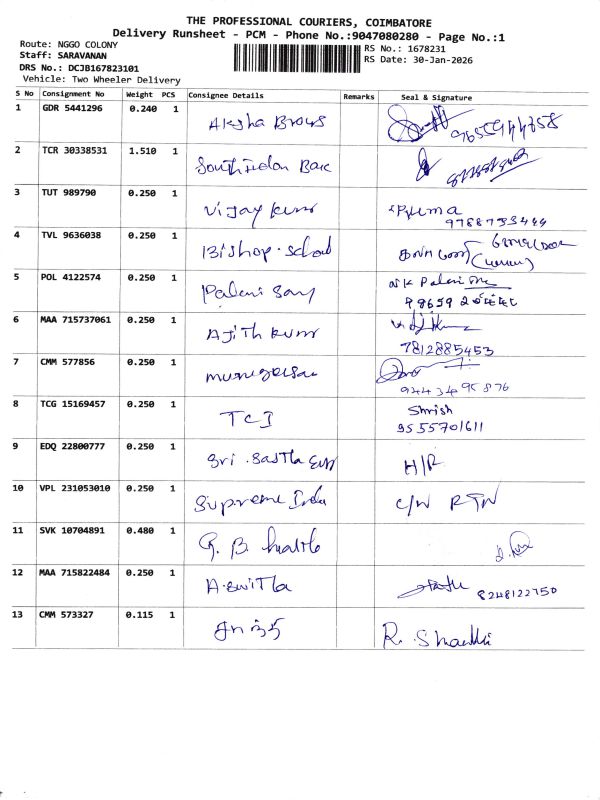 THE PROFESSIONAL COURIERS, COIMBATORE
Delivery Runsheet - PCM - Phone No.:9047080280 - Page No.:1
Route: NGGO COLONY
RS No.: 1678231
Staff: SARAVANAN
RS Date: 30-Jan-2026
DRS No.: DCJB167823101
Vehicle: Two Wheeler Delivery
S No Consignment No Weight PCS Consignee Details Remarks Seal & Signature
1 GDR 5441296 0.240 1
2 TCR 30338531 1.510 1
3 TUT 989790 0.250 1 Vijay Kumr
9788753444
4 TVL 9636038 0.250 1 Bishop. School
5 POL 4122574 0.250 1 Palani Samy
6 MAA 715737061 0.250 1 Ajith Kumr
7812885453
7 CMM 577856 0.250 1
9443495876
8 TCG 15169457 0.250 1 TCI Shrish
9555701611
9 EDQ 22800777 0.250 1 Sri H/R
10 VPL 231053010 0.250 1 Supreme C/W RTN
11 SVK 10704891 0.480 1 G. B.
12 MAA 715822484 0.250 1
8248122750
13 CMM 573327 0.115 1 சாந்தி R. Shanthi